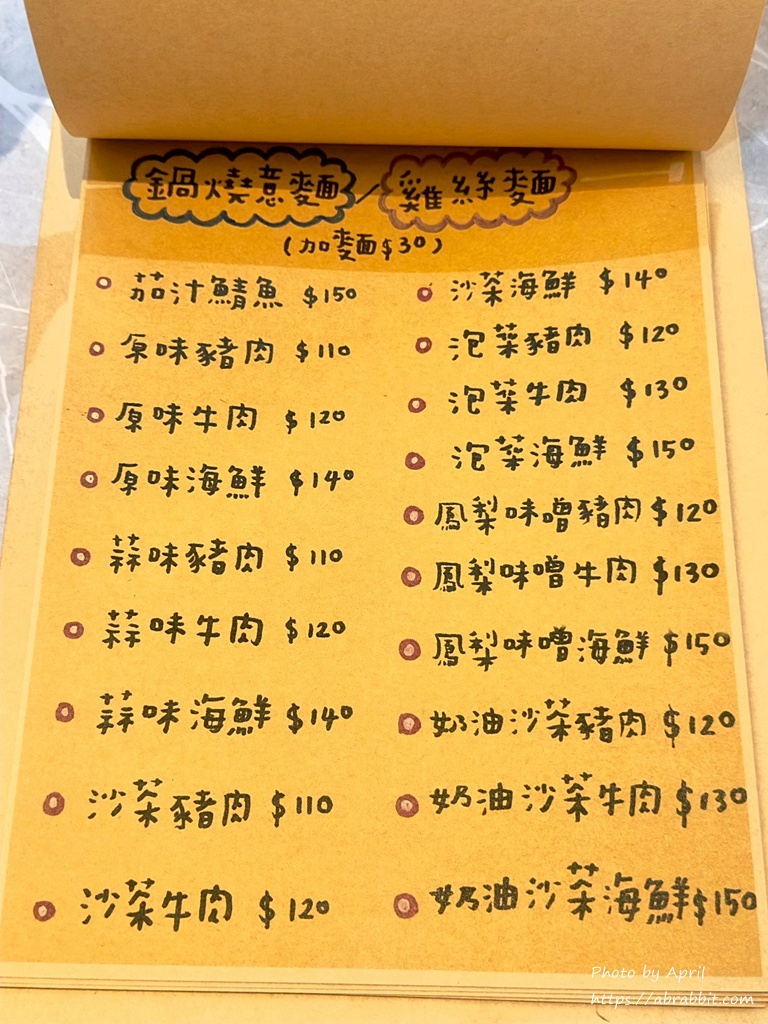 鍋燒意麵/雞絲麵
(加麵$30)
茄汁鯖魚 $150
原味豬肉 $110
原味牛肉 $120
原味海鮮 $140
蒜味豬肉 $110
蒜味牛肉 $120
蒜味海鮮 $140
沙茶豬肉 $110
沙茶牛肉 $120
沙茶海鮮 $140
泡菜豬肉 $120
泡菜牛肉 $130
泡菜海鮮 $150
鳳梨味噌豬肉 $120
鳳梨味噌牛肉 $130
鳳梨味噌海鮮 $150
奶油沙茶豬肉 $120
奶油沙茶牛肉 $130
奶油沙茶海鮮 $150
Photo by April
https://abrabbit.com